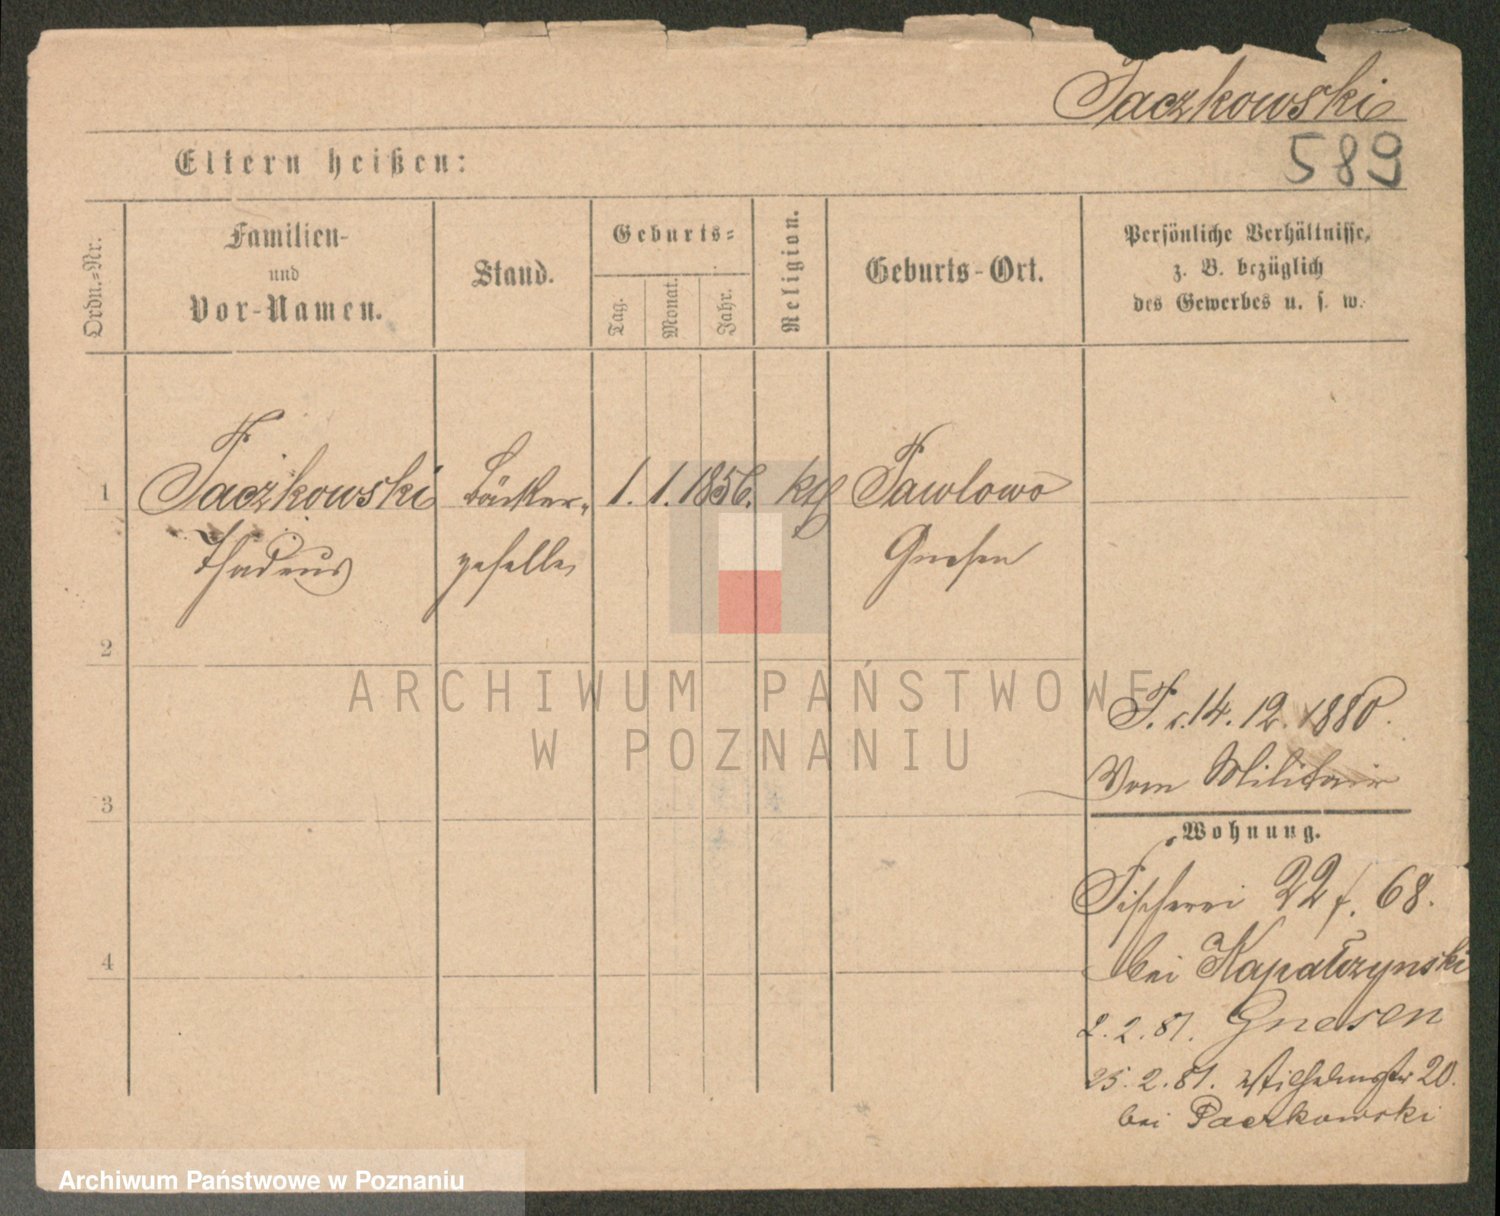 Paczkowski
589
Eltern heißen:
Ordn.-Nr.
Familien-
und
Vor-Namen.
Stand.
Geburts-
Tag.
Monat.
Jahr.
Religion.
Geburts-Ort.
Persönliche Verhältnisse,
z. B. bezüglich
des Gewerbes u. s. w.
1 Paczkowski Bäcker- 1. 1. 1856. kth Pawlowo
Thadeus geselle Gnesen
2
ARCHIWUM PAŃSTWOWE
W POZNANIU
14. 12. 1880.
Vom Militair
3
Wohnung.
Fischerei 22 f. 68.
bei Kapałczynski
4
2. 2. 81. Gnesen
25. 2. 81. Wilhelmstr 20.
bei Paczkowski
Archiwum Państwowe w Poznaniu